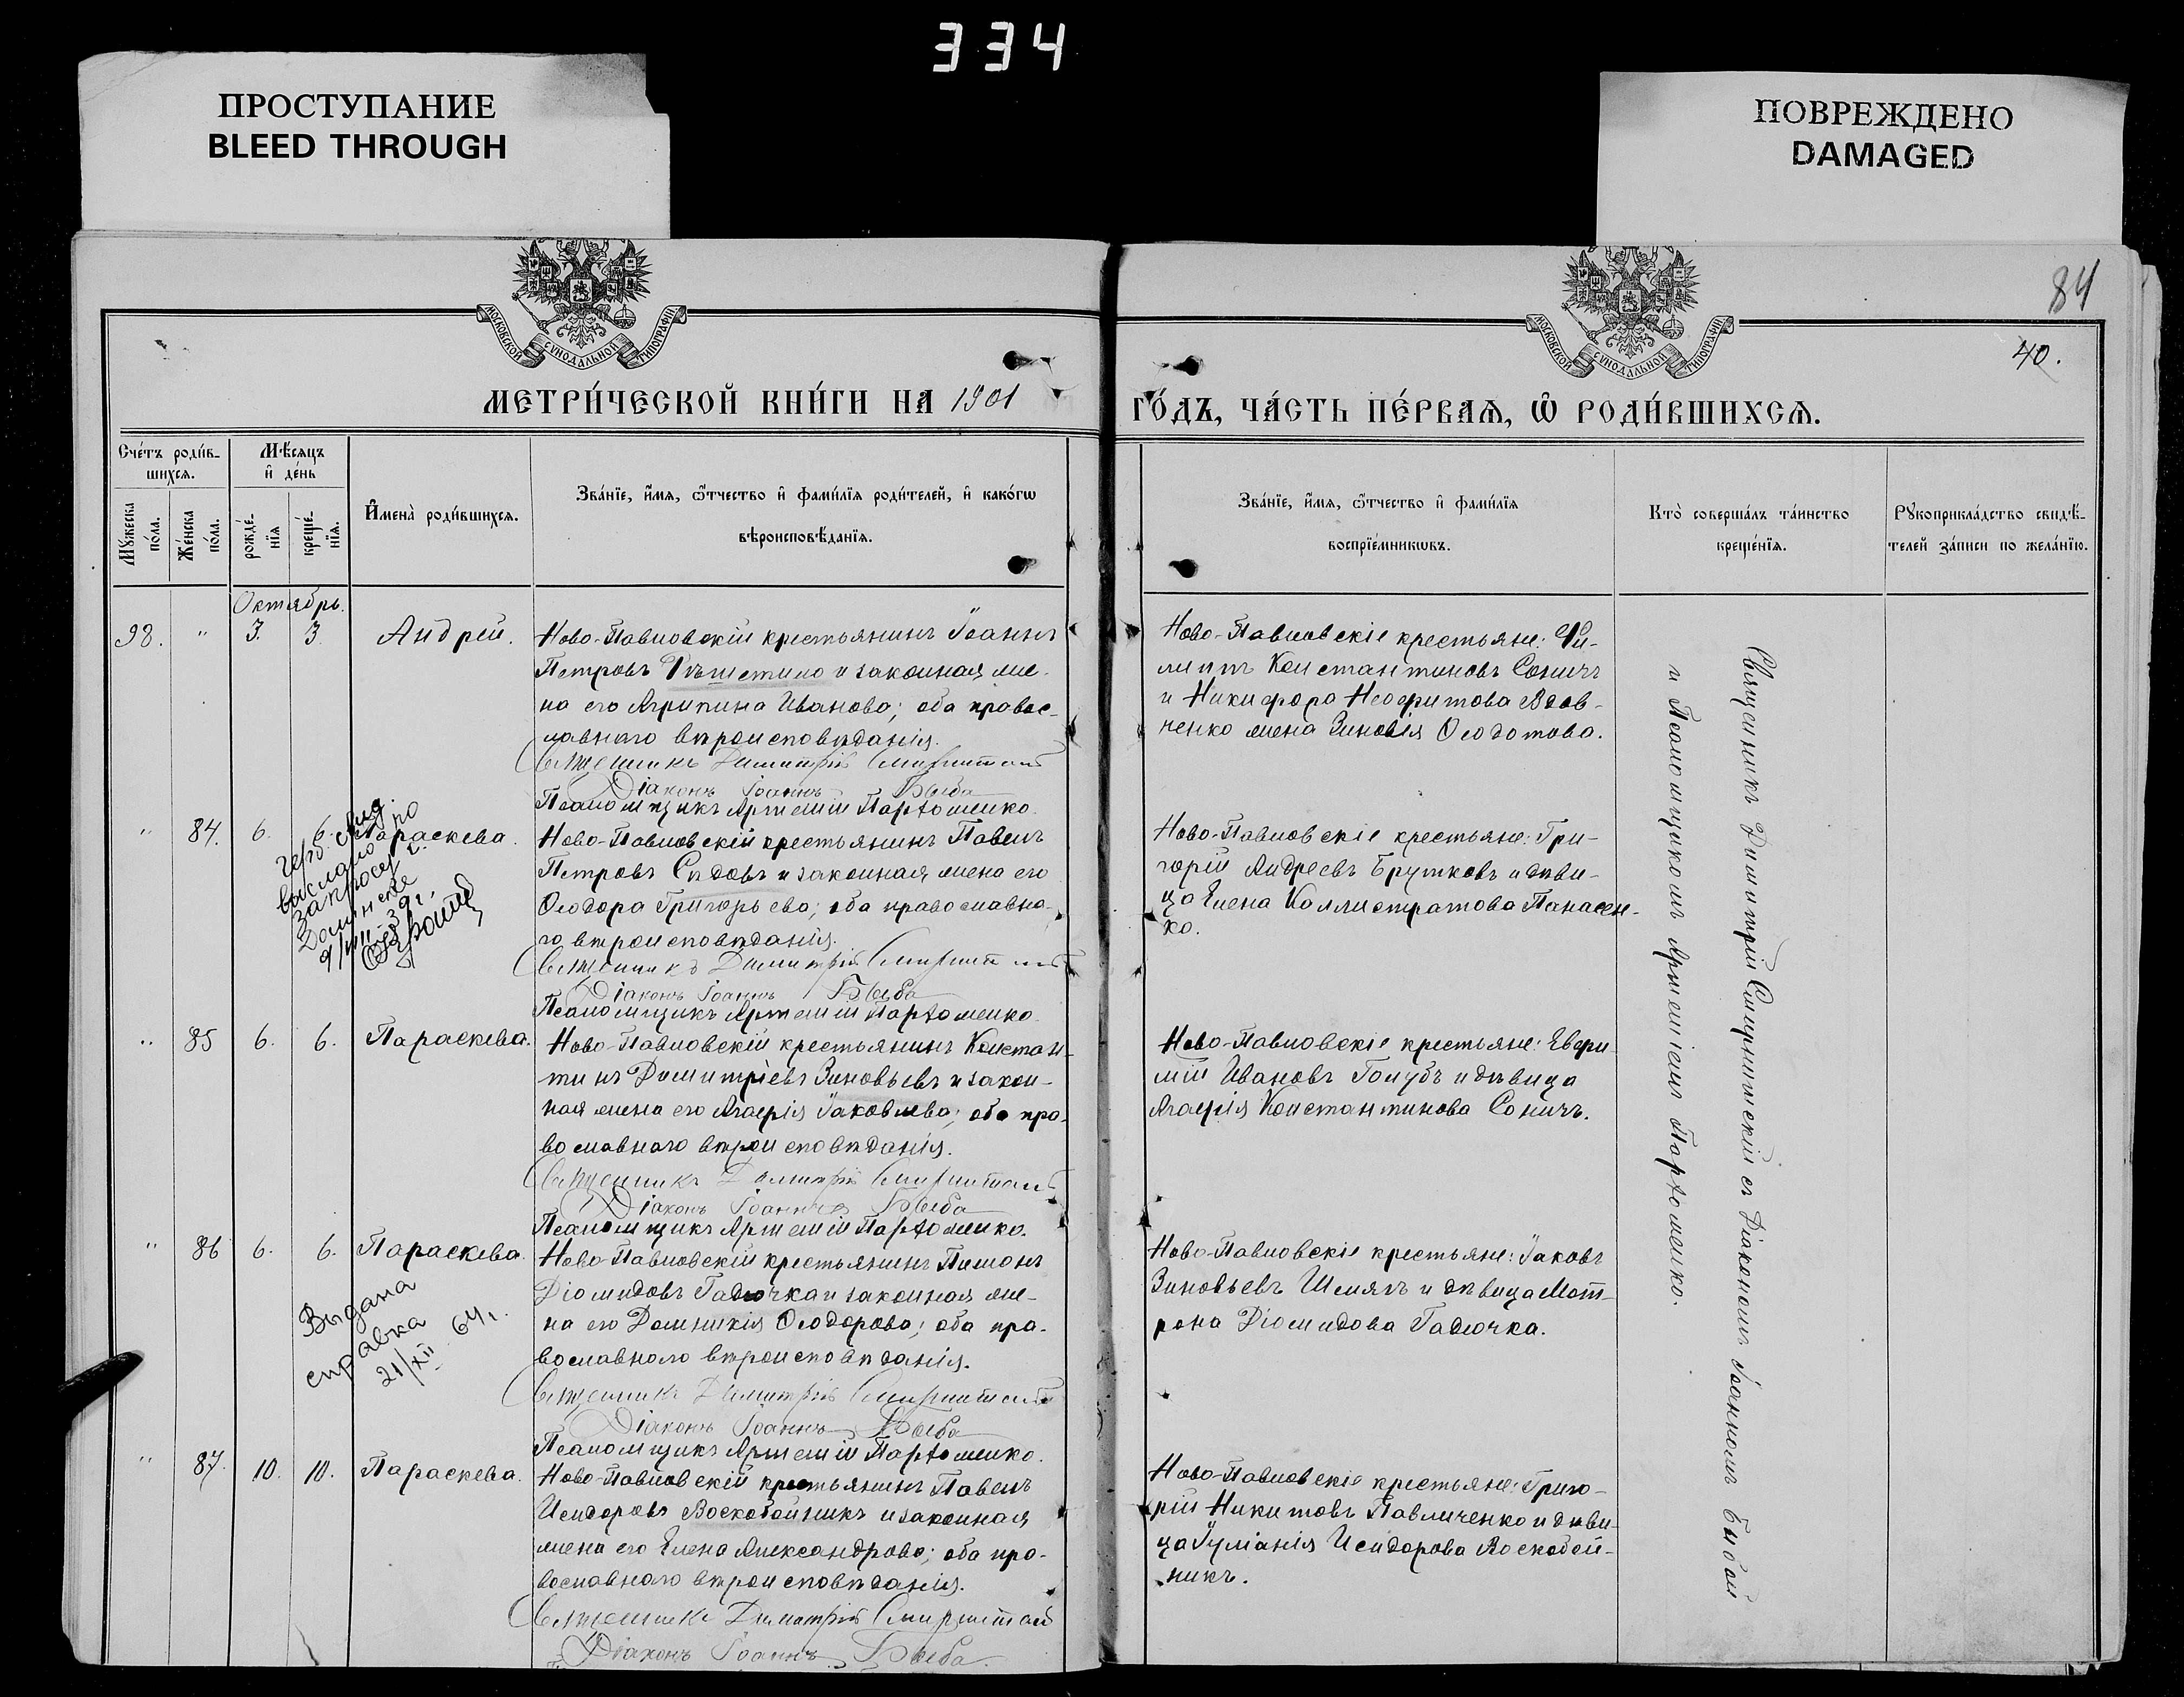 334
ПРОСТУПАНИЕ
BLEED THROUGH
ПОВРЕЖДЕНО
DAMAGED
84
40.
МОСКОВСКОЙ СѴНОДАЛЬНОЙ ТИПОГРАФІИ
МОСКОВСКОЙ СѴНОДАЛЬНОЙ ТИПОГРАФІИ
МЕТРИ́ЧЕСКОЙ КНИ́ГИ НА 1901
ГО́ДЪ, ЧА́СТЬ ПЕ́РВАѦ, Ѽ РОДИ́ВШИХСѦ.
Сче́тъ роди́в-
шихсѧ.
Мꙋ́жеска по́ла.
Же́нска по́ла.
Мѣ́сѧцъ
и҆ де́нь
рожде́-
нїѧ
креще́-
нїѧ.
И҆мена̀ роди́вшихсѧ.
Зва́нїе, и҆́мѧ, ѻ҆́тчество и҆ фами́лїѧ роди́телей, и҆ како́гѡ
вѣроисповѣ́данїѧ.
Зва́нїе, и҆́мѧ, ѻ҆́тчество и҆ фами́лїѧ
воспрїе́мникѡвъ.
Кто̀ соверша́лъ та́инство
креще́нїѧ.
Рꙋкоприкла́дство свидѣ́-
телей за́писи по жела́нїю.
Октябрь.
98. " 3. 3. Андрей.
Ново-Павловскій крестьянинъ Іоаннъ
Петровъ и законная же-
на его Агрипина Иванова; оба правос-
лавнаго вѣроисповѣданія.
Священникъ Димитрій
Діаконъ Іоаннъ Быба
Псаломщикъ Артемій Парѳоменко.
Ново-Павловскіе крестьяне: Фи-
липпъ Константиновъ Соничъ
и Никифора Неофитова Вдов-
ченко жена Зиновія Ѳеодотова.
" 84. 6. 6. Параскева.
выслано
9/VIII-39г.
Ново-Павловскій крестьянинъ Павелъ
Петровъ Сѣдовъ и законная жена его
Ѳеодора Григорьева; оба православна-
го вѣроисповѣданія.
Священникъ Димитрій
Діаконъ Іоаннъ Быба
Псаломщикъ Артемій Парѳоменко.
Ново-Павловскіе крестьяне: Гри-
горій Андреевъ Брутковъ и дѣви-
ца Елена Каллистратова Панасен-
ко.
" 85 6. 6. Параскева.
Ново-Павловскій крестьянинъ Констан-
тинъ Димитріевъ Зиновьевъ и закон-
ная жена его Агафія Іаковлева; оба пра-
вославнаго вѣроисповѣданія.
Священникъ Димитрій
Діаконъ Іоаннъ Быба
Псаломщикъ Артемій Парѳоменко.
Ново-Павловскіе крестьяне: Евфи-
мій Ивановъ Голубъ и дѣвица
Агафія Константинова Соничъ.
" 86 6. 6. Параскева.
Выдана
справка
21/XII 64г.
Ново-Павловскій крестьянинъ Пимонъ
Діомидовъ Гадючка и законная же-
на его Домникія Ѳеодорова; оба пра-
вославнаго вѣроисповѣданія.
Священникъ Димитрій
Діаконъ Іоаннъ Быба
Псаломщикъ Артемій Парѳоменко.
Ново-Павловскіе крестьяне: Іаковъ
Зиновьевъ Шемягъ и дѣвица Мат-
рона Діомидова Гадючка.
" 87. 10. 10. Параскева.
Ново-Павловскій крестьянинъ Павелъ
Исидоровъ Воскобойникъ и законная
жена его Елена Александрова; оба пра-
вославнаго вѣроисповѣданія.
Священникъ Димитрій
Діаконъ Іоаннъ Быба.
Ново-Павловскіе крестьяне: Григо-
рій Никитовъ Павличенко и дѣви-
ца Іуліанія Исидорова Воскобой-
никъ.
Священникъ Димитрій съ Діакономъ Іоанномъ Быбой
и Псаломщикомъ Артеміемъ Парѳоменко.